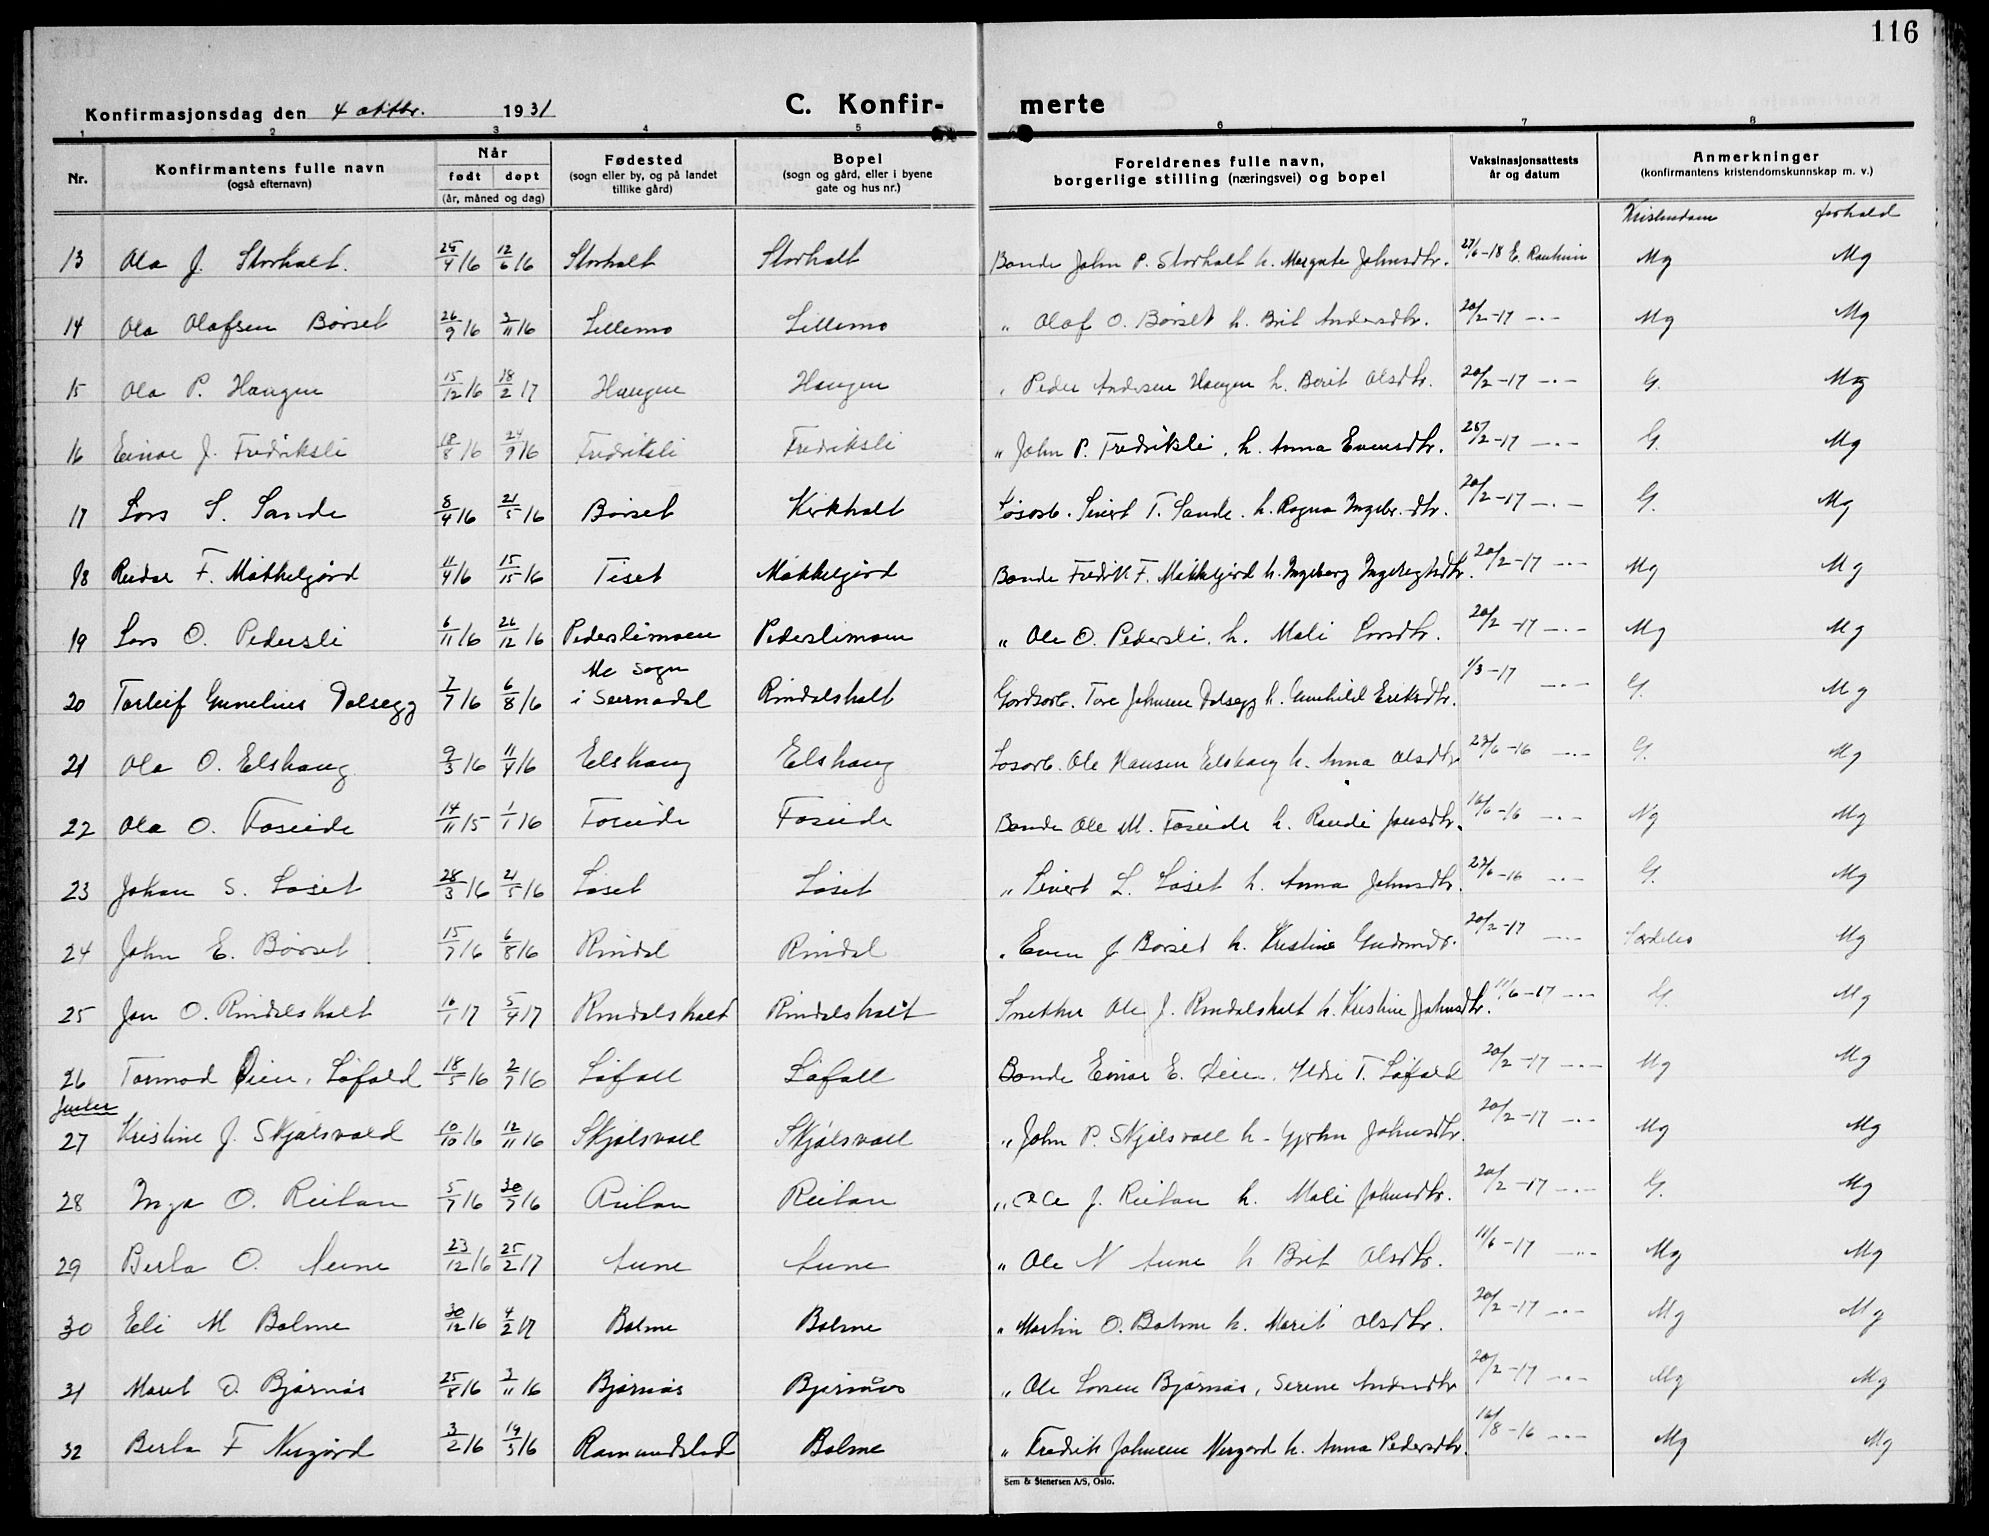 116
Konfirmasjonsdag den 4 oktbr. 1931 C. Konfir- merte
1 2 3 4 5 6 7 8
Nr. Konfirmantens fulle navn (også efternavn) Når født døpt (år, måned og dag) Fødested (sogn eller by, og på landet tillike gård) Bopel (sogn og gård, eller i byene gate og hus nr.) Foreldrenes fulle navn, borgerlige stilling (næringsvei) og bopel Vaksinasjonsattests år og datum Anmerkninger (konfirmantens kristendomskunnskap m. v.)
Kristendom forhold
13 Ola J. Storholt. 25/4 16 12/6 16 Storholt Storholt Bonde John P. Storholt h. Margrete Johnsdtr. 27/6-18 E. Mg Mg
14 Ola Olafsen Børset 26/9 16 3/11 16 Lillemo Lillemo " Olaf O. Børset h. Brit Andersdtr. 20/2-17 -"- Mg Mg
15 Ola P. Haugen 15/12 16 18/2 17 Haugen Haugen " Peder Andersen Haugen h. Berit Olsdtr. 20/2-17 -"- G. Mg
16 Einar J. Fredriksli 18/8 16 24/9 16 Fredriksli Fredriksli " John P. Fredriksli, h. Anna Evensdtr. 25/2-17 -"- G. Mg
17 Lars S. Sande 8/4 16 21/5 16 Børset Kirkholt Løsarb. Sivert T. Sande. h. Ragna Ingebr. dtr. 20/2-17 -"- G. Mg
18 Reidar F. Mokkelgård 11/4 16 15/15 16 Tiset Mokkelgård Bonde Fredrik F. Mokkelgård h. Ingeborg 20/2-17 -"- Mg Mg
19 Lars O. Pedersli 6/11 16 26/12 16 Pederslimoen Pederslimoen " Ole O. Pedersli, h. Mali Larsdtr. 20/2-17 -"- Mg Mg
20 Torleif Gunelius Dalsegg 7/7 16 6/8 16 Mo Sogn i Surnadal Rindalsholt Gårdsarb. Tore Johnsen Dalsegg h. Gunhild Eriksdtr. 1/3-17 -"- G. Mg
21 Ola O. Elshaug 9/3 16 11/4 16 Elshaug Elshaug Løsarb. Ole Hansen Elshaug h. Anna Olsdtr 23/6-16 -"- G. Mg
22 Ola O. Foseide 14/11 15 1/1 16 Foseide Foseide Bonde Ole M. Foseide h. Randi Jonsdtr. 16/6-16 -"- Ng Mg
23 Johan S. Løset 28/3 16 21/5 16 Løset Løset " Sivert L. Løset h. Anna Johnsdtr. 22/6-16 -"- G. Mg
24 John E. Børset 15/7 16 6/8 16 Rindal Rindal " Even J Børset h. Kristine Gudmdtr. 20/2-17 -"- Særdeles Mg
25 Jon O. Rindalsholt 16/1 17 5/4 17 Rindalsholt Rindalsholt Snekker Ole J. Rindalsholt h. Kristine Johnsdtr. 11/6-17 -"- G. Mg
26 Tormod Øien, Løfald 18/5 16 2/7 16 Løfall Løfall Bonde Einar E. Øien, Ildri T. Løfald 20/2-17 -"- Mg Mg
Jenter
27 Kristine J. Skjølsvold 10/10 16 12/11 16 Skjølsvoll Skjølsvoll " John P. Skjølsvoll h. Johnsdtr. 20/2-17 -"- Mg Mg
28 Inga O. Reitan 5/7 16 30/7 16 Reitan Reitan " Ole J. Reitan h. Mali Johnsdtr. 20/2-17 -"- G. Mg
29 Berta O. Aune 23/12 16 25/2 17 Aune Aune " Ole N Aune h Brit Olsdtr. 11/6-17 -"- Mg Mg
30 Eli M Bolme 30/12 16 4/2 17 Bolme Bolme " Martin O. Bolme h. Marit Olsdtr. 20/2-17 -"- Mg Mg
31 Marit O. Bjørnås 25/8 16 3/11 16 Bjørnås Bjørnås " Ole Larsen Bjørnås, Serine Andersdtr 20/2-17 -"- Mg Mg
32 Berta F Nergård 3/2 16 19/3 16 Romundstad Bolme " Fredrik Johnsen Nergård h. Anna Pedersdtr. 16/8-16 -"- Mg Mg
Sem & Stenersen A/S, Oslo.